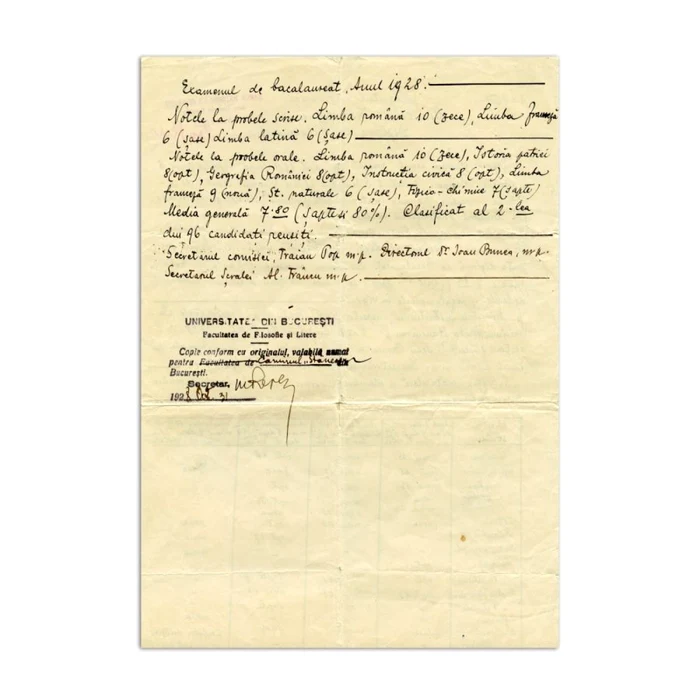 Examenul de bacalaureat, Anul 1928.
Notele la probele scrise. Limba română 10 (zece), Limba franceză
6 (șase) Limba latină 6 (șase)
Notele la probele orale. Limba română 10 (zece), Istoria patriei
8 (opt), Geografia României 8 (opt), Instrucția civică 8 (opt), Limba
franceză 9 (nouă), Șt. naturale 6 (șase), Fizico-Chimice 7 (șapte)
Media generală 7.80 (șapte și 80%). Clasificat al 2-lea
din 96 candidați reușiți.
Secretarul comisiei, Traian Pop m.p. Directorul Dr. Ioan Bunea, m.p.
Secretarul școalei Al. Trâncu m.p.
UNIVERSITATEA DIN BUCUREȘTI
Facultatea de Filosofie și Litere
Copie conform cu originalul, valabilă numai
pentru Facultatea de Căminul
București.
Secretar,
1928 Oct. 31